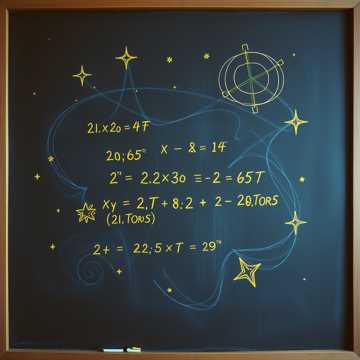 21.x20 = 4F
20;65° x - 8 = 1F
2" = 2.2x30 = -2 = 65T
xy = 2,T + 8;2 + 2 - 20,TORS
(21,TORS)
2+ = 22;5 x T = 29"